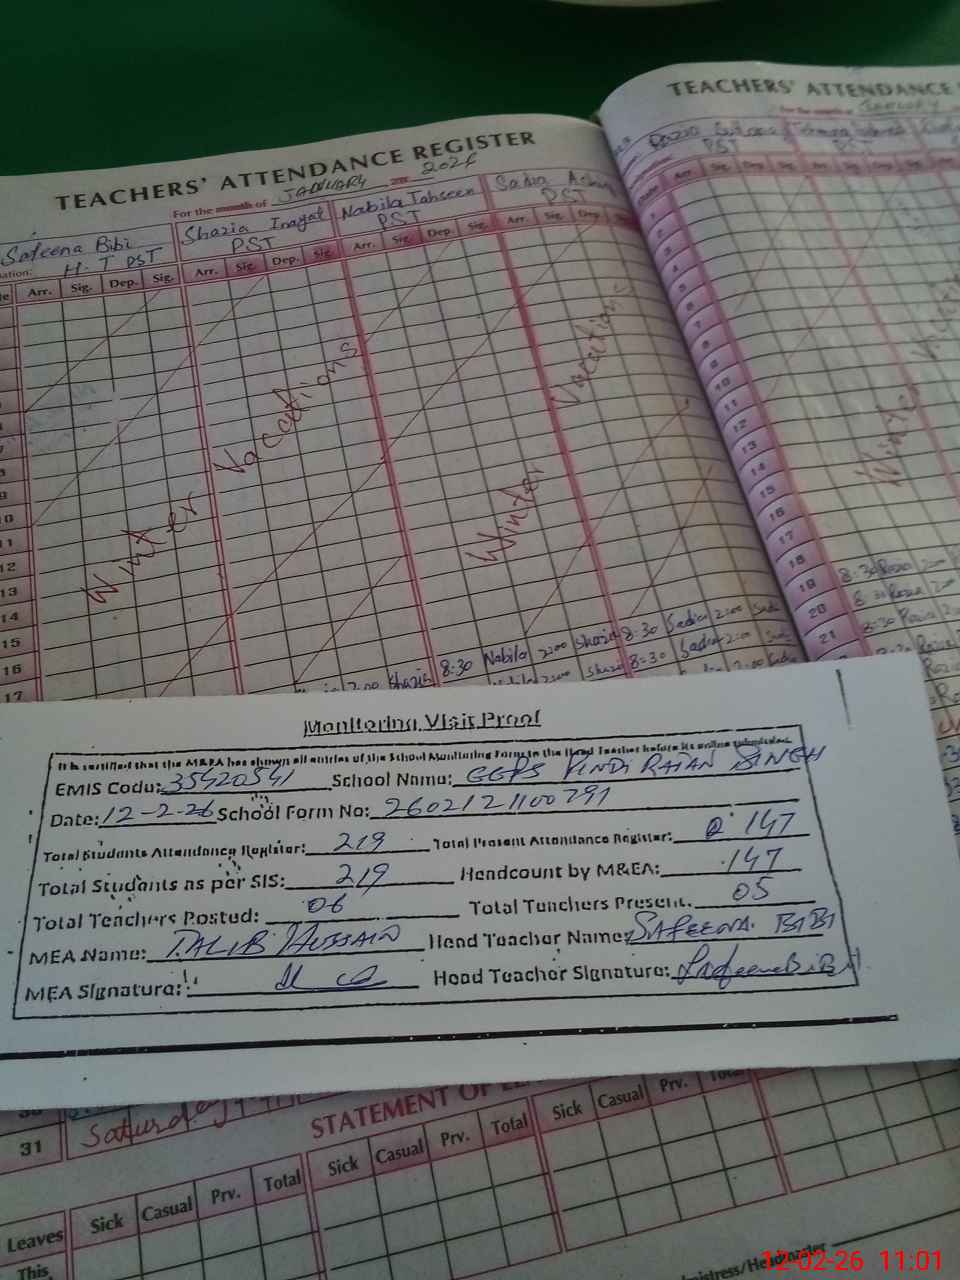 TEACHERS' ATTENDANCE REGISTER
For the month of JANUARY 2026
Safeena Bibi
H.T PST
Shazia Inayat
PST
Nabila Tahseen
PST
Sadia
PST
Arr. Sig. Dep. Sig. Arr. Sig. Dep. Sig. Arr. Sig. Dep. Sig. Arr. Sig. Dep.
Winter Vaccations
Winter Vacations
10
11
12
13
14
15
16
17
8:30 Nabila 2:00 Shazi 8:30 Sadia 2:00 Sadi
8:30 Sadia 2:00
TEACHERS' ATTENDANCE
For the month of JANUARY
PST PST
Arr. Sig. Dep. Sig.
1
2
3
4
5
6
7
8
9
10
11
12
13
14
15
16
17
18
19 8:30 Razia 2:00
20 8:30 Razia 2:00
21 8:30 Razia 2:00
Winter
Monitoring Visit Proof
It is certified that the M&EA has shown all entries of the School Monitoring Form to the Head Teacher before its online submission.
EMIS Code: 35420541 School Name: GGPS PINDI RATAN SINGH
Date: 12-2-26 School Form No: 2602121100791
Total Students Attendance Register: 219 Total Present Attendance Register: 147
Total Students as per SIS: 219 Headcount by M&EA: 147
Total Teachers Posted: 06 Total Teachers Present: 05
MEA Name: TALIB HUSSAIN Head Teacher Name: SAFEENA BIBI
MEA Signature: Head Teacher Signature: Safeena Bibi
31 Saturday
STATEMENT OF
Leaves Sick Casual Prv. Total Sick Casual Prv. Total Sick Casual Prv. Total
This
mistress/Headmaster
12-02-26 11:01